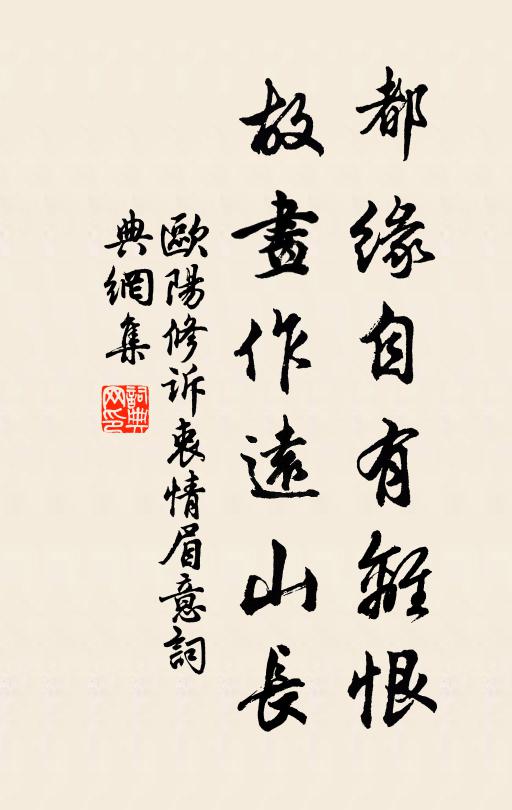 都緣自有離恨
故畫作遠山長
歐陽修訴衷情眉意詞
典網集
詞典
网印